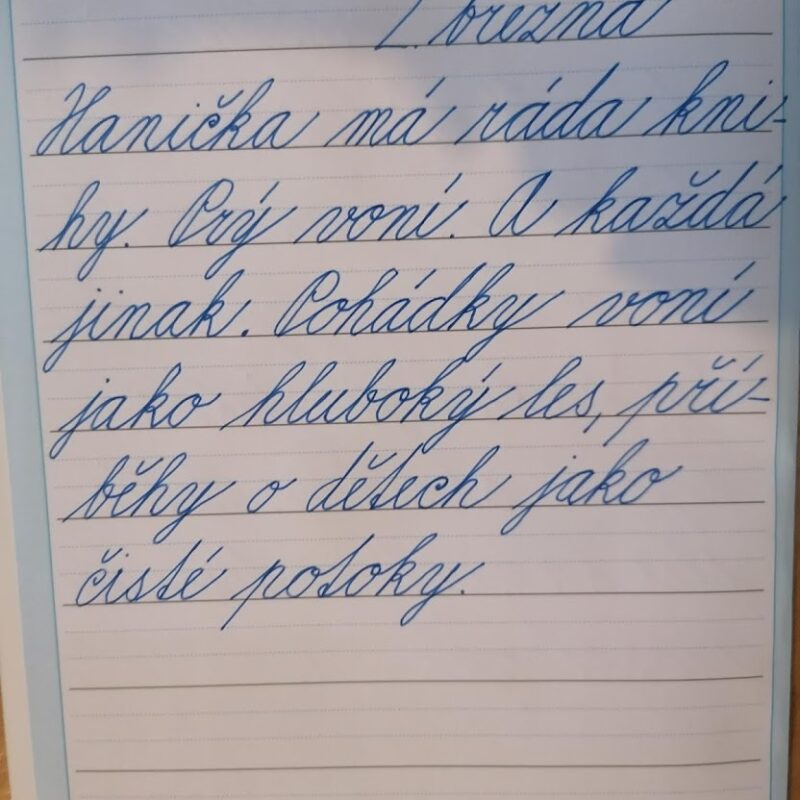 března
Hanička má ráda kni-
hy. Prý voní. A každá
jinak. Pohádky voní
jako hluboký les, pří-
běhy o dětech jako
čisté potoky.